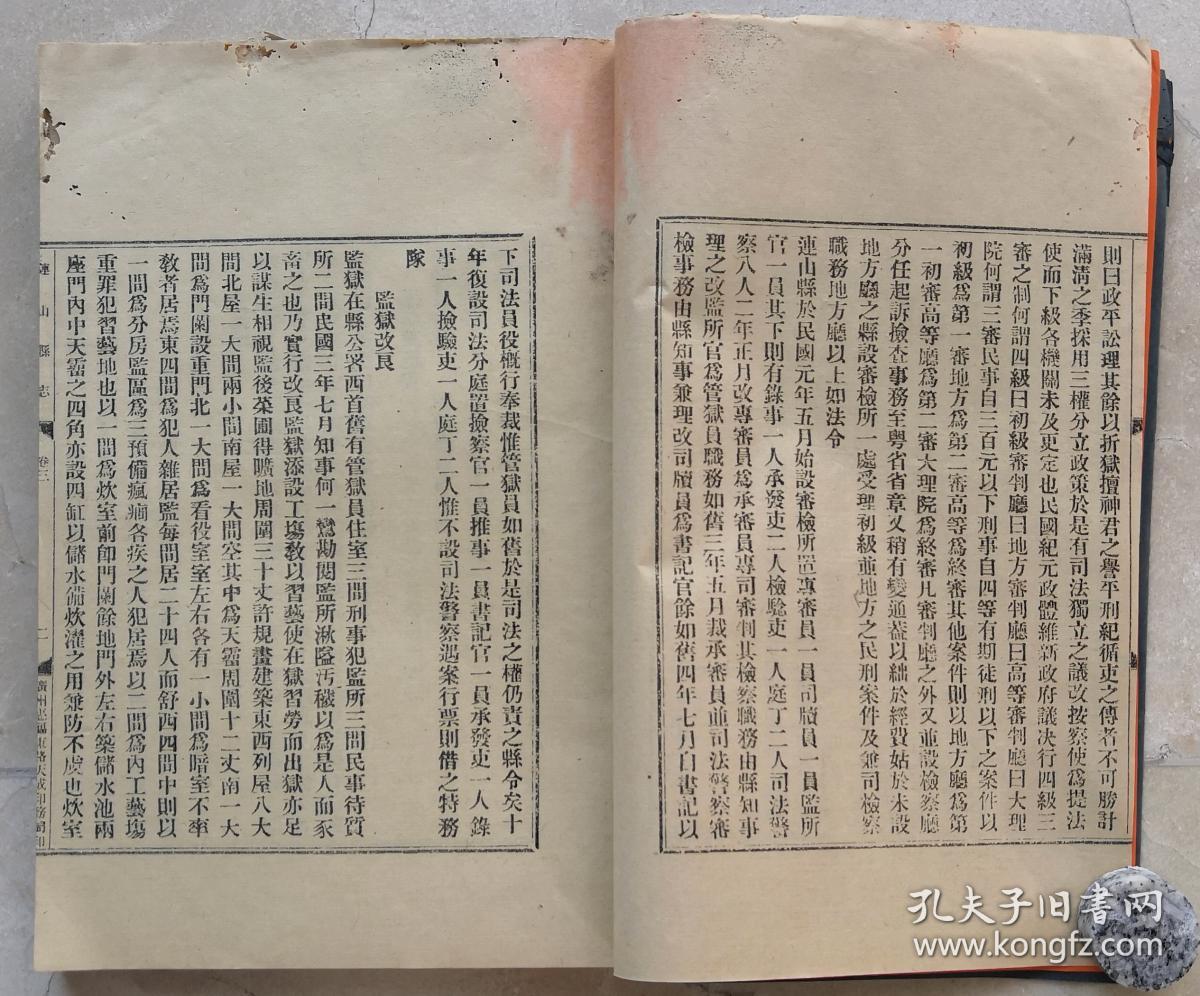 則曰政平訟理其餘以折獄擅神君之譽平刑紀循吏之傳者不可勝計
滿清之季採用三權分立政策於是有司法獨立之議改按察使爲提法
使而下級各機關未及更定也民國紀元政體維新政府議决行四級三
審之制何謂四級曰初級審判廳曰地方審判廳曰高等審判廳曰大理
院何謂三審民事自三百元以下刑事自四等有期徒刑以下之案件以
初級爲第一審地方爲第二審高等爲終審其他案件則以地方廳爲第
一初審高等廳爲第二審大理院爲終審凡審判廳之外又並設檢察廳
分任起訴檢查事務至粤省省章又稍有變通葢以絀於經費姑於未設
地方廳之縣設審檢所一處受理初級並地方之民刑案件及兼司檢察
職務地方廳以上如法令
連山縣於民國元年五月始設審檢所置專審員一員司牘員一員監所
官一員其下則有錄事一人承發吏二人檢驗吏一人庭丁二人司法警
察八人二年正月改專審員爲承審員專司審判其檢察職務由縣知事
理之改監所官爲管獄員職務如舊三年五月裁承審員並司法警察審
檢事務由縣知事兼理改司牘員爲書記官餘如舊四年七月自書記以
下司法員役慨行奉裁惟管獄員如舊於是司法之權仍責之縣令矣十
年復設司法分庭置撿察官一員推事一員書記官一員承發吏一人錄
事一人撿驗吏一人庭丁二人惟不設司法警察遇案行票則借之特務
隊
監獄改良
監獄在縣公署西首舊有管獄員住室三間刑事犯監所三間民事待質
所二間民國三年七月知事何一鸞勘閱監所湫隘汚穢以爲是人而豕
畜之也乃實行改良監獄添設工塲敎以習藝使在獄習勞而出獄亦足
以謀生相視監後菜圃得曠地周圍三十丈許規畫建築東西列屋八大
間北屋一大間兩小間南屋一大間空其中爲天霤周圍十二丈南一大
間爲門闌設重門北一大間爲看役室室左右各有一小間爲暗室不率
敎者居焉東四間爲犯人雜居監每間居二十四人而舒西四間中則以
一間爲分房監區爲三預備瘋癎各疾之人犯居焉以二間爲內工藝塲
重罪犯習藝地也以一間爲炊室前卽門闌餘地門外左右築儲水池兩
座門內中天霤之四角亦設四缸以儲水備炊濯之用兼防不虞也炊室
連山縣志
卷三
二
廣州惠福東路天成印務局印
孔夫子旧书网
www.kongfz.com